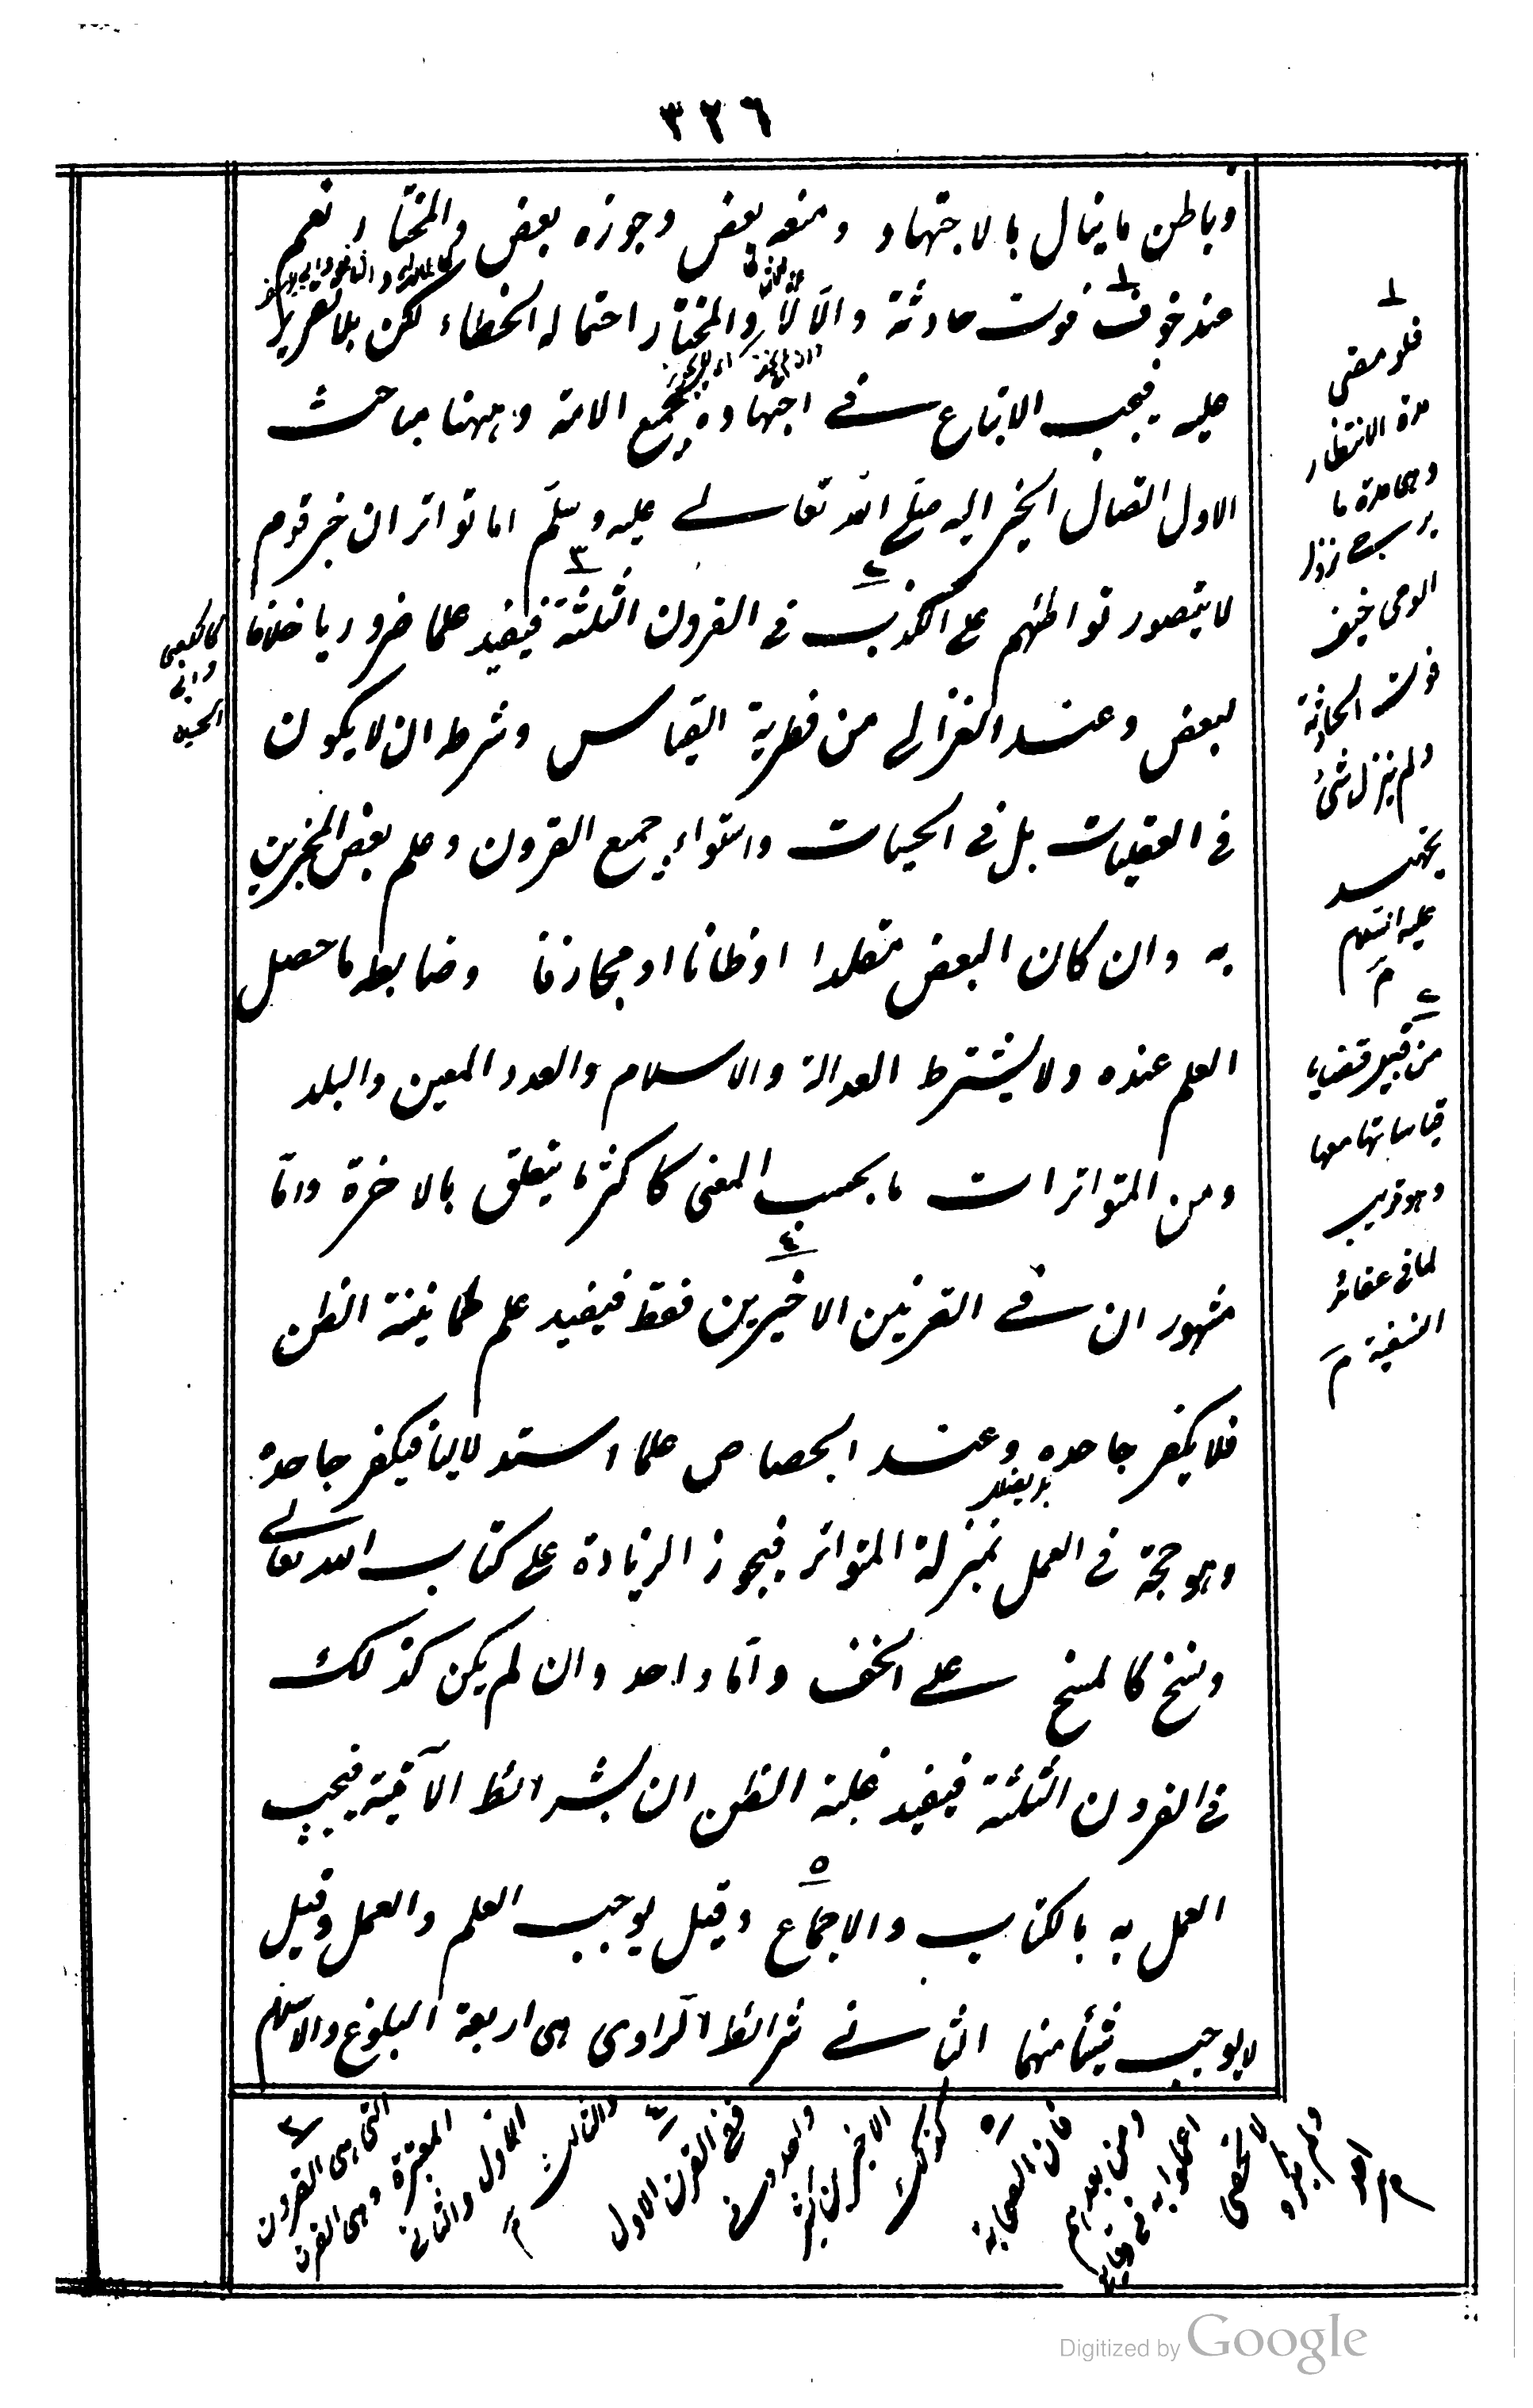 ٣٢٦
وباطن ما ينال بالاجتهاد ومنعه بعض وجوزه بعض والمختار نعم
عند خوف فوت حادثة والا لا والمختار احتماله الخطاء لكن بلا تقرير
عليه فيجب الاتباع في اجتهاده جميع الامة وههنا مباحث
الاول اتصال الخبر اليه صلى الله تعالى عليه وسلم اما تواتر ان خبر قوم
لا يتصور تواطئهم على الكذب في القرون الثلثة فيفيد علما ضروريا خلافا
لبعض وعند الغزالى من فطرية القياس وشرط ان لا يكون
في العقليات بل في الحسيات واستواء جميع القرون وعلم بعض المخبرين
به وان كان البعض مقلدا او ظانا او مجازفا وضابطه ما حصل
العلم عنده ولا يشترط العدالة والاسلام والعدد المعين والبلد
ومن المتواترات ما بحسب المعنى كاكثر ما يتعلق بالاخرة واما
مشهور ان في القرنين الاخيرين فقط فيفيد علم طمانينة الظن
فلا يكفر جاحده وعند الجصاص علما استدلاليا فيكفر جاحده
وهو حجة في العمل بمنزلة المتواتر فيجوز الزيادة على كتاب الله تعالى
ونسخ كالمسح على الخف واما واحد وان لم يكن كذلك
في القرون الثلثة فيفيد غلبة الظن ان بشرائط الآتية فيجب
العمل به بالكتاب والاجماع وقيل يوجب العلم والعمل وقيل
لا يوجب شيئا منهما الثاني شرائط الراوى هي اربعة البلوغ والاسلام
١
فلو مضى
مدة الانتظار
وهى مدة ما
يرجى نزول
الوحى خيف
فوت الحادثة
ولم ينزل شئ
يجتهد
عليه السلام
م
٢
من قبيل قضايا
قياساتها معها
وهو قريب
لما فى عقائد
النسفية م
كالكعبى
وابى
الحسين
٣
التى هى القرون
المعتبرة وهى القرن
الاول والثانى
والثالث
م
٤
فى القرن الاول
٥
فان الصحابة
ومن بعدهم
عملوا به فى وقايع
لا تحصى
ولم ينكره
احد
م